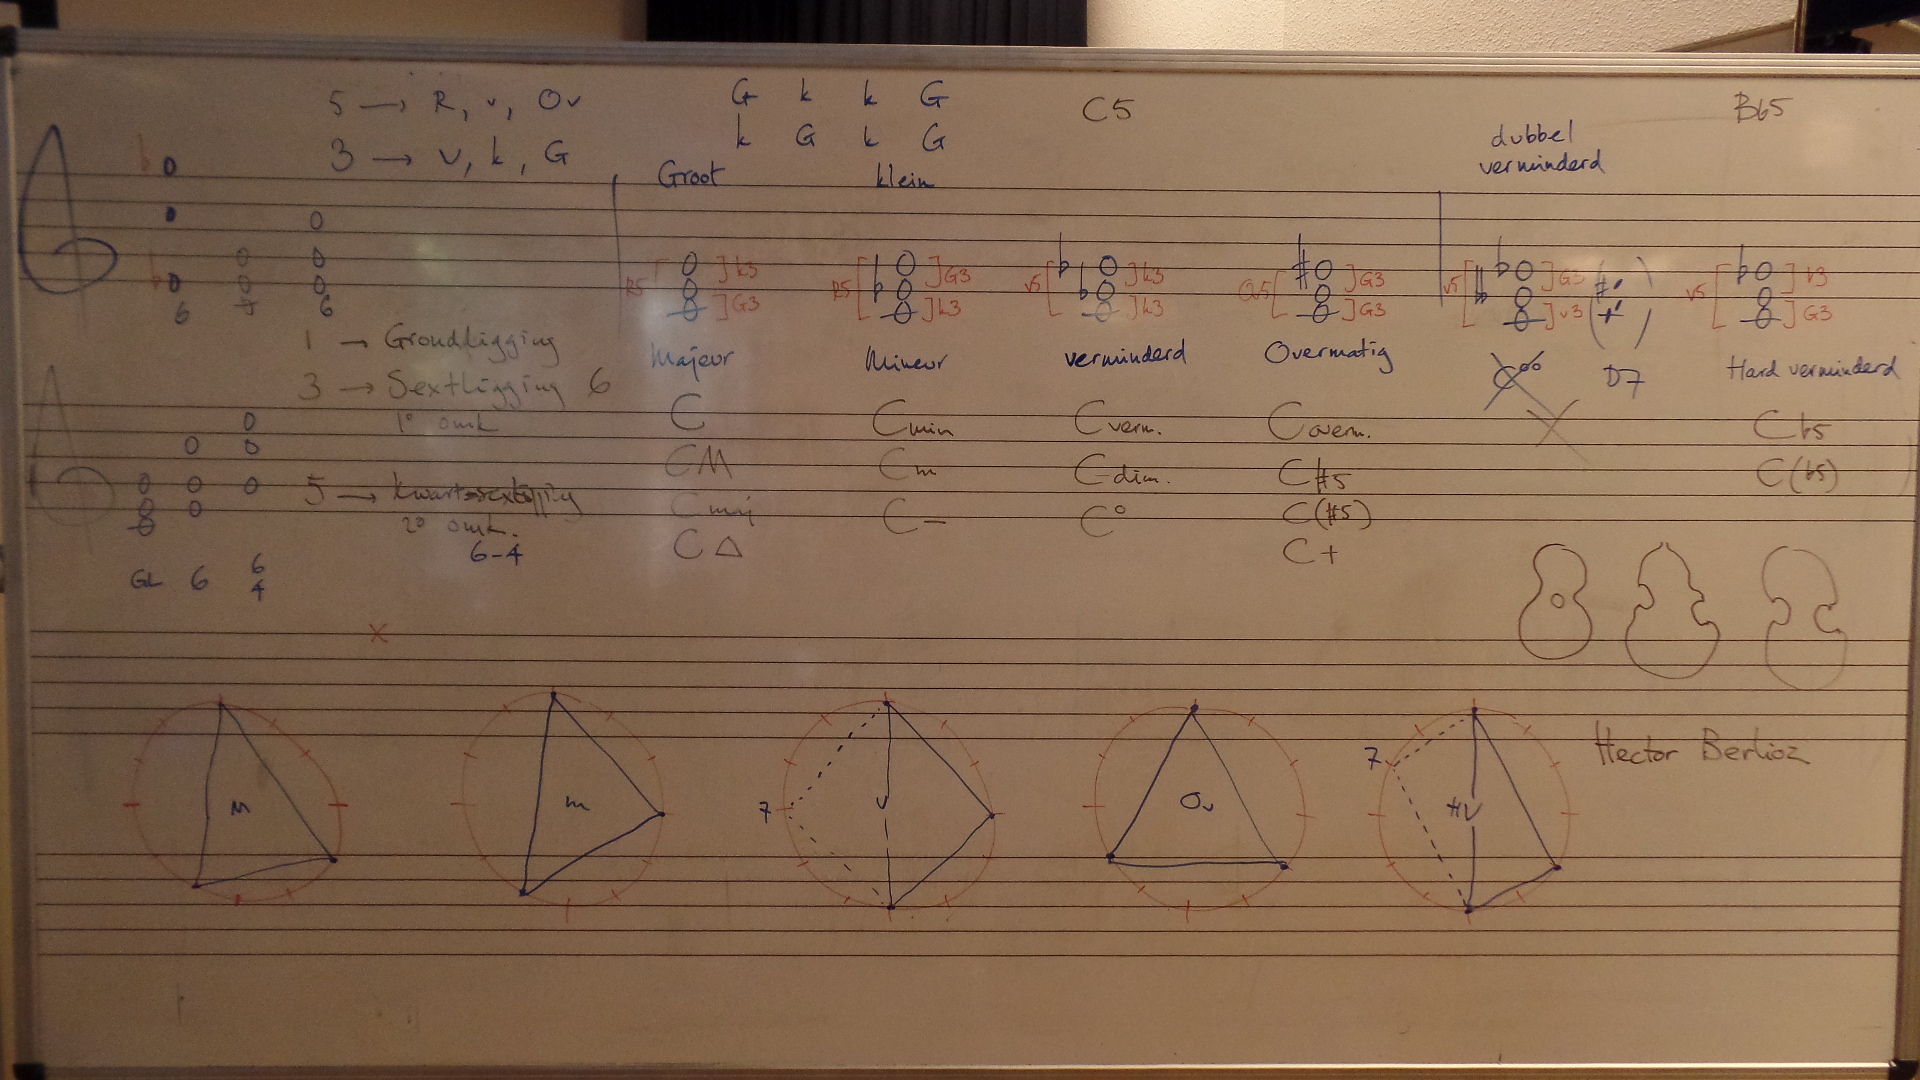 5 → R, v, Ov
3 → v, k, G
G k k G
k G k G
C5
Bb5
dubbel
verminderd
Groot
klein
R5 k3 G3
R5 G3 k3
v5 k3 k3
Ov5 G3 G3
v5 G3 v3
v5 v3 G3
6 6
1 → Grondligging
3 → Sextligging 6
1° omk
5 → kwartsextligging
2° omk.
6-4
GL 6 6
4
Majeur
C
CM
Cmaj
C△
Mineur
Cmin
Cm
C–
verminderd
Cverm.
Cdim.
C°
Overmatig
Coverm.
C#5
C(#5)
C+
C°° D7
Hard verminderd
Cb5
C(b5)
M
m
7 v
Ov
7 HV
Hector Berlioz